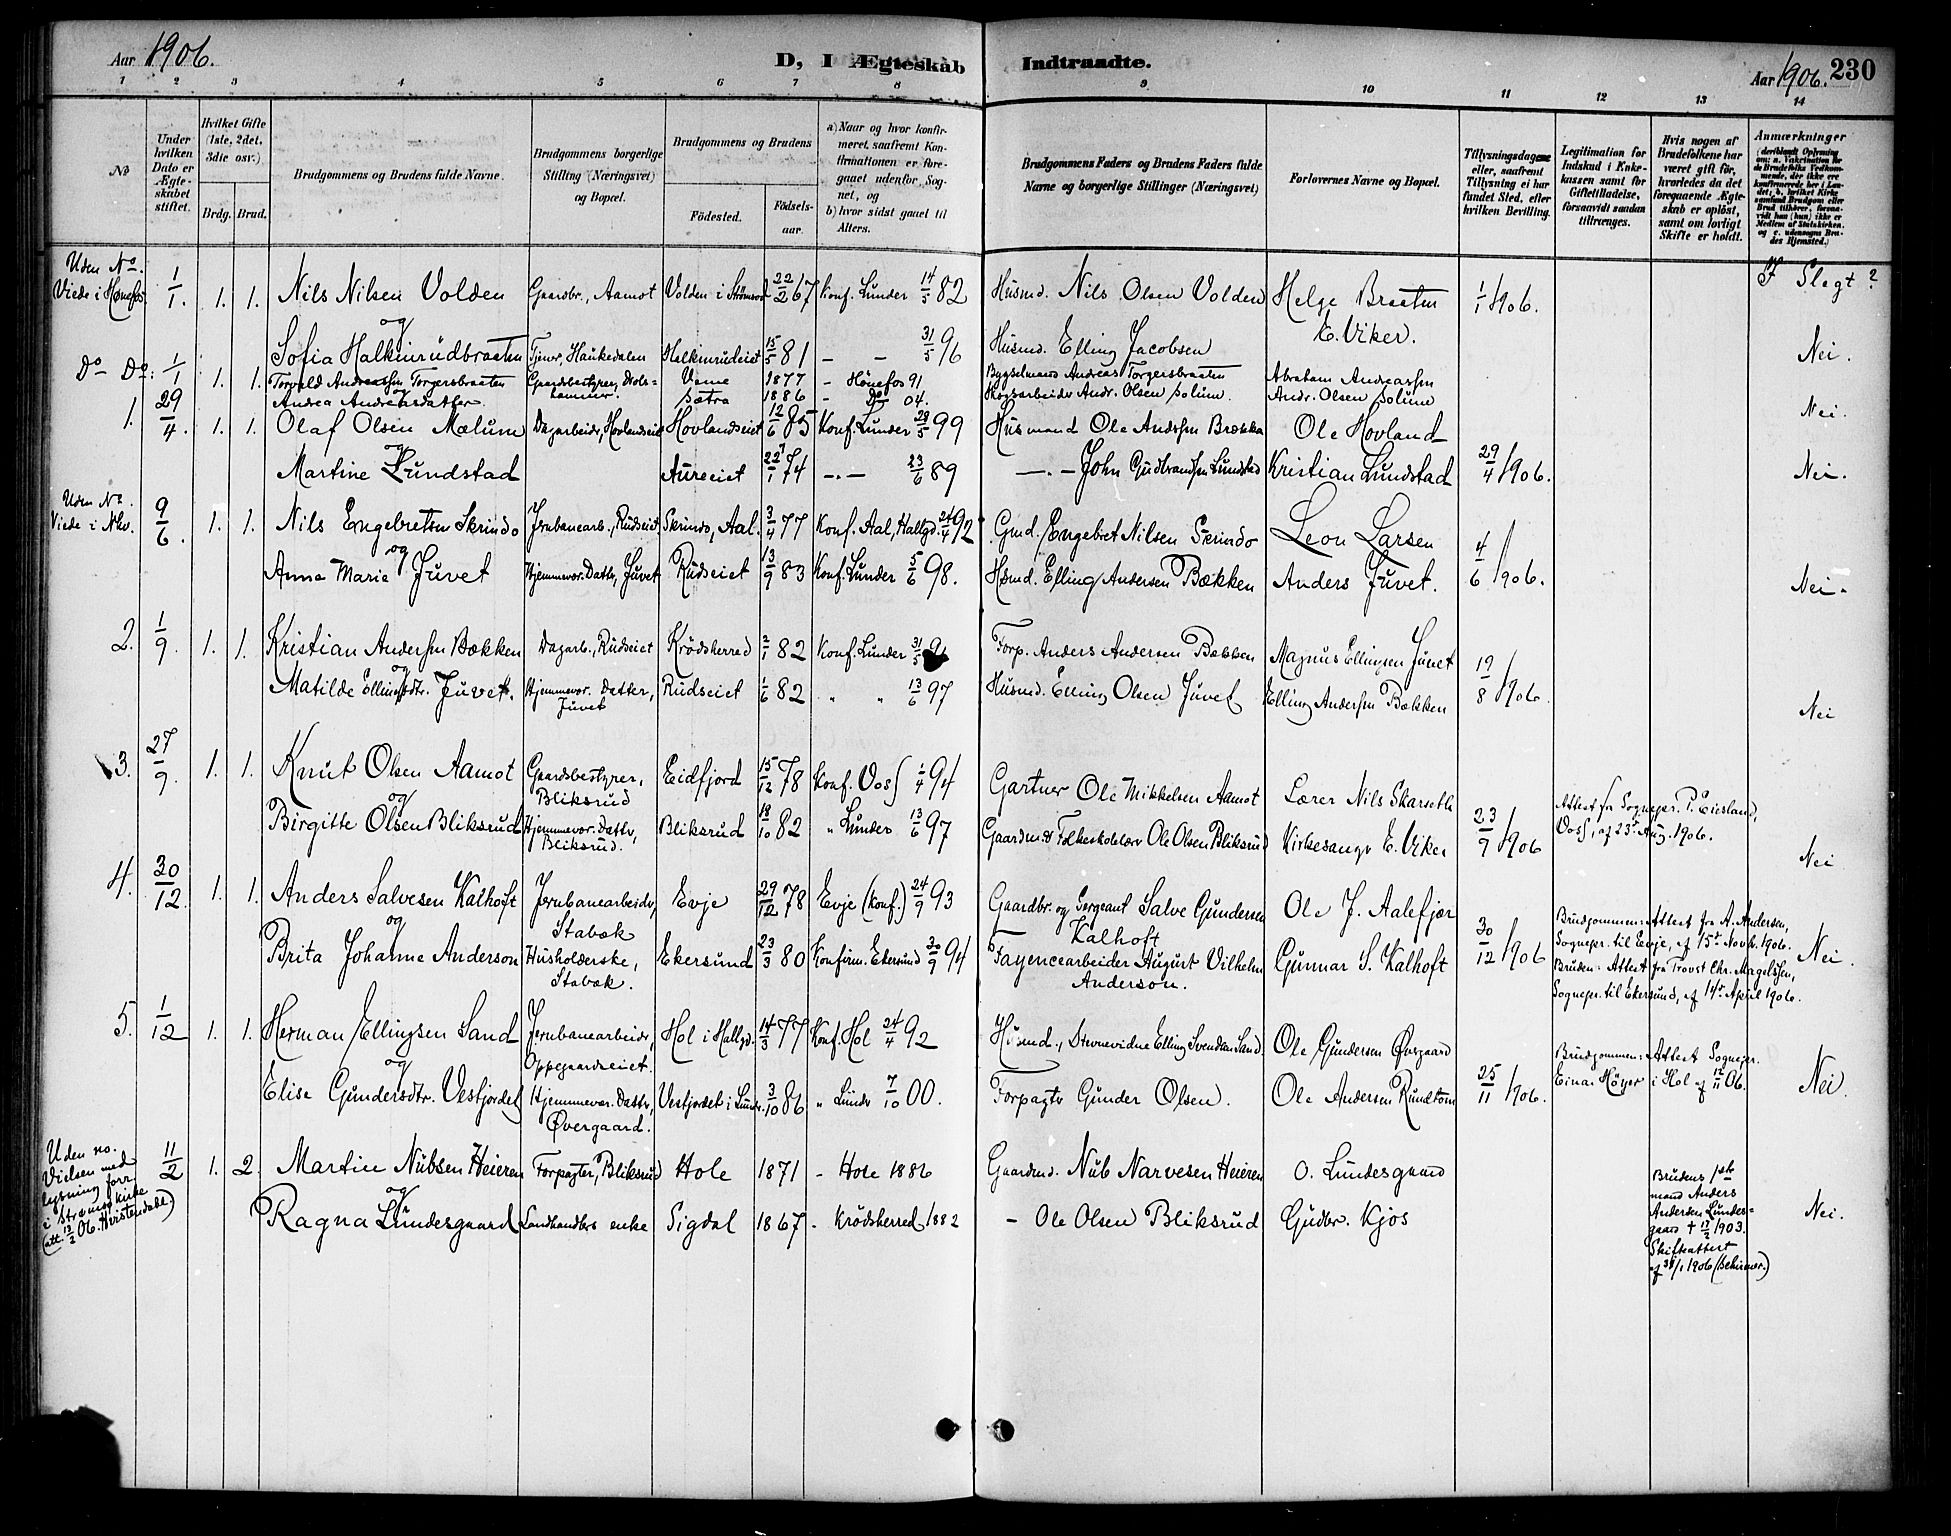 Aar 1906.
D, I Ægteskab
Indtraadte.
Aar 1906. 230
1 2 3 4 5 6 7 8 9 10 11 12 13 14
No
Under hvilken Dato er Ægteskabet stiftet.
Hvilket Gifte (1ste, 2det, 3die osv.)
Brdg. Brud.
Brudgommens og Brudens fulde Navne.
Brudgommens borgerlige Stilling (Næringsvei) og Bopæl.
Brudgommens og Brudens
Fødested.
Fødselsaar.
a) Naar og hvor konfirmeret, saafremt Konfirmationen er foregaaet udenfor Sognet, og
b) hvor sidst gaaet til Alters.
Brudgommens Faders og Brudens Faders fulde Navne og borgerlige Stillinger (Næringsvei)
Forlovernes Navne og Bopæl.
Tillysningsdagene eller, saafremt Tillysning ei har fundet Sted, efter hvilken Bevilling.
Legitimation for Indskud i Enkekassen samt for Giftetilladelse, forsaavidt saadan tiltrænges.
Hvis nogen af Brudefolkene har været gift før, hvorledes da det foregaaende Ægteskab er opløst, samt om lovligt Skifte er holdt.
Anmærkninger
(deriblandt Oplysning om: a. Vakcination for de Brudefolks Vedkommende, der ikke ere konfirmerede her i Landet; b. hvilket Kirkesamfund Brudgom eller Brud tilhører, forsaavidt han (hun) ikke er Medlem af Statskirken, og c. udensogns Brudes Hjemsted.)
Uden No. Viede i Hønefos 1/1. 1. 1. Nils Nilsen Volden Gaardbr., Aamot Volden i Strømsod 22/2 67 Konf. Lunder 14/5 82 Husmd. Nils Olsen Volden Helge Braaten 1/1 1906. I Slegt?
og
Sofia Halkinrudbraaten Tjener, Haukedalen Halkinrudeiet 15/5 81 - - 31/5 96 Husmd. Elling Jacobsen E. Viker. Nei.
Do Do: 1/1 1. 1. Torvald Andreassen Torgersbraaten Gaardsbestyrer, Veme 1877 - Hønefos 91 Bygselmand Andreas Torgersbraaten Abraham Andreassen
Andrea Andreasdatter Sætra 1886 - Do 04. Skogsarbeider Andr. Olsen Solum. Andr. Olsen Solum Nei.
1. 29/4. 1. 1. Olaf Olsen Mælum Dagarbeider, Hovlandseiet Hovlandseiet 12/6 85 Konf. Lunder 28/5 99 Husmand Ole Anderssen Brækka Ole Hovland
og
Martine Lundstad Aureeiet 22/1 74 -.- 23/6 89 -.- John Gudbrandsen Lundstad Kristian Lundstad 29/4 1906. Nei.
Uden No. Viede i Nhv. 9/6. 1. 1. Nils Engebretsen Skrindo Jernbanearb., Rudseiet. Skrindo, Aal. 3/4 77 Konf. Aal, Hallgd. 24/4 92 Gmd. Engebret Nilsen Skrindo Leon Larsen
og
Anne Marie Juvet Hjemmevær. Datter, Juvet Rudseiet 13/9 83 Konf. Lunder 5/6 98. Hsmd. Elling Andersen Bækken Anders Juvet. 4/6 1906. Nei.
2. 1/9. 1. 1. Kristian Andersen Bækken Dagarb., Rudseiet Krödsherred 2/1 82 Konf. Lunder 31/5 96 Forp. Anders Andersen Bækken Magnus Ellingsen Juvet
og
Matilde Ellingsdtr. Juvet. Hjemmevær. Datter, Juvet Rudseiet 1/6 82 " " 13/6 97 Husmd. Elling Olsen Juvet Elling Andersen Bækken 19/8 1906. Nei
3. 27/9. 1. 1. Knut Olsen Aamot Gaardsbestyrer, Bliksrud Eidfjord 15/12 78 Konf. Voss 1/4 94 Gartner Ole Mikkelsen Aamot Lærer Nils Skarseth Attest fra Sognepr. P. Eiesland, Voss, af 23de Aug. 1906.
og
Birgitte Olsen Bliksrud Hjemmevær. Datter, Bliksrud. Bliksrud 18/10 82 " Lunder 13/6 97 Gaardmd. & Folkeskolelærer Ole Olsen Bliksrud Kirkesanger E. Viker 23/9 1906 Nei
4. 30/12. 1. 1. Anders Salvesen Kalhoft Jernbanearbeider, Stabæk Evje 29/12 78 Evje (konf.) 24/9 93 Gaardbr. og Sergeant Salve Gundersen Kalhoft Ole J. Aalefjær Brudgommen: Attest fra A. Andersen, Sognepr. til Evje, af 15de Novbr. 1906.
og
Brita Johanne Anderson Husholderske, Stabæk. Ekersund 23/3 80 Konfirm. Ekersund 30/9 94 Fayencearbeider August Vilhelm Anderson. Gunnar S. Kalhoft 30/12 1906 Bruden: Attest fra Provst Chr. Magelssen, Sognepr. til Ekersund, af 14de April 1906. Nei.
5. 1/12 1. 1. Herman Ellingsen Sand Jernbanearbeider, Oppegaardseiet. Hol i Hallgd. 14/3 77 Konf. Hol 24/4 92 Husmd., Stevnevidne Elling Svendsen Sand. Ole Gundersen Øvrgaard Brudgommen: Attest Sognepr. Einar Höyer i Hol af 12/11 06.
og
Elise Gundersdtr. Vestjordet Hjemmevær. Datter, Øvergaard. Vestjordet i Lunder. 3/10 86 " Lunder 7/10 00. Forpagter Gunder Olsen. Ole Andersen Rundtom 25/11 1906. Nei.
Uden no. Vielsen med lysning forr. i Strømsø kirke (att. 13/2 06. Hvistendahl.) 11/2 1. 2. Martin Nubsen Heieren Forpagter, Bliksrud Hole 1871 - Hole 1886 Gaardmd. Nub Narvesen Heieren O. Lundesgaard Brudens 1ste mand Anders Andersen Lundesgaard † 17/2 1903. Skifteattest af 31/1 1906
og
Ragna Lundesgaard Landhandlers enke Sigdal 1867 - Krödsherred 1882 - Ole Olsen Bliksrud Gudbr. Kjos Nei.